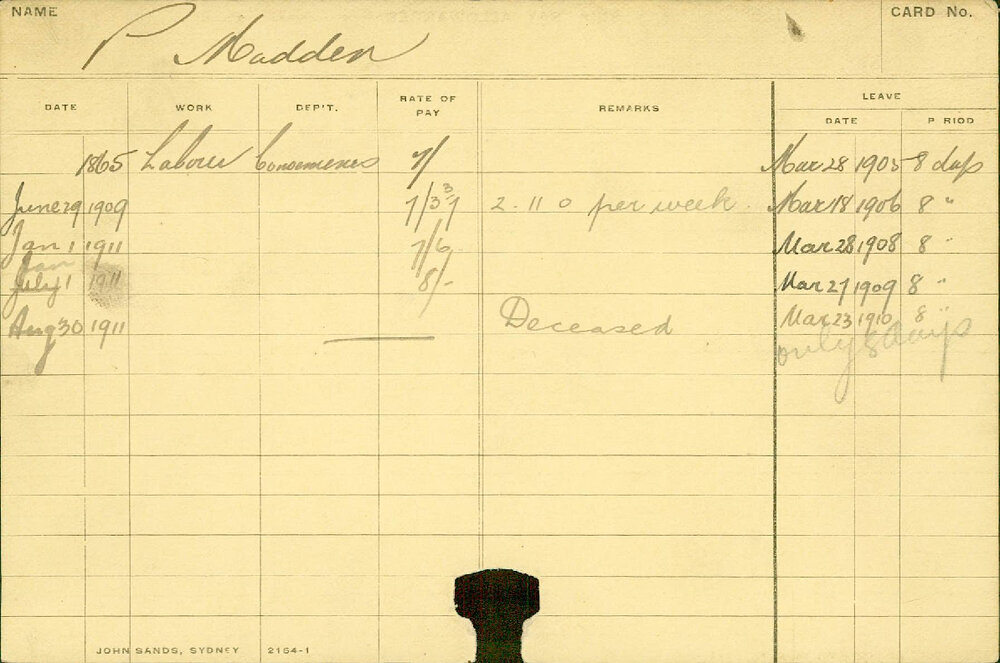 NAME CARD No.
P Madden
DATE WORK DEP'T. RATE OF PAY REMARKS LEAVE
DATE P RIOD
1865 Labour 7/ Mar 28 1905 8 days
June 29 1909 7/3 2. 11 0 per week. Mar 18 1906 8 "
Jan 1 1911 7/6 Mar 28 1908 8 "
Jan
July 1 1911 8/- Mar 27 1909 8 "
Aug 30 1911 Deceased Mar 23 1910 8 "
only 8 days
JOHN SANDS, SYDNEY 2164-1